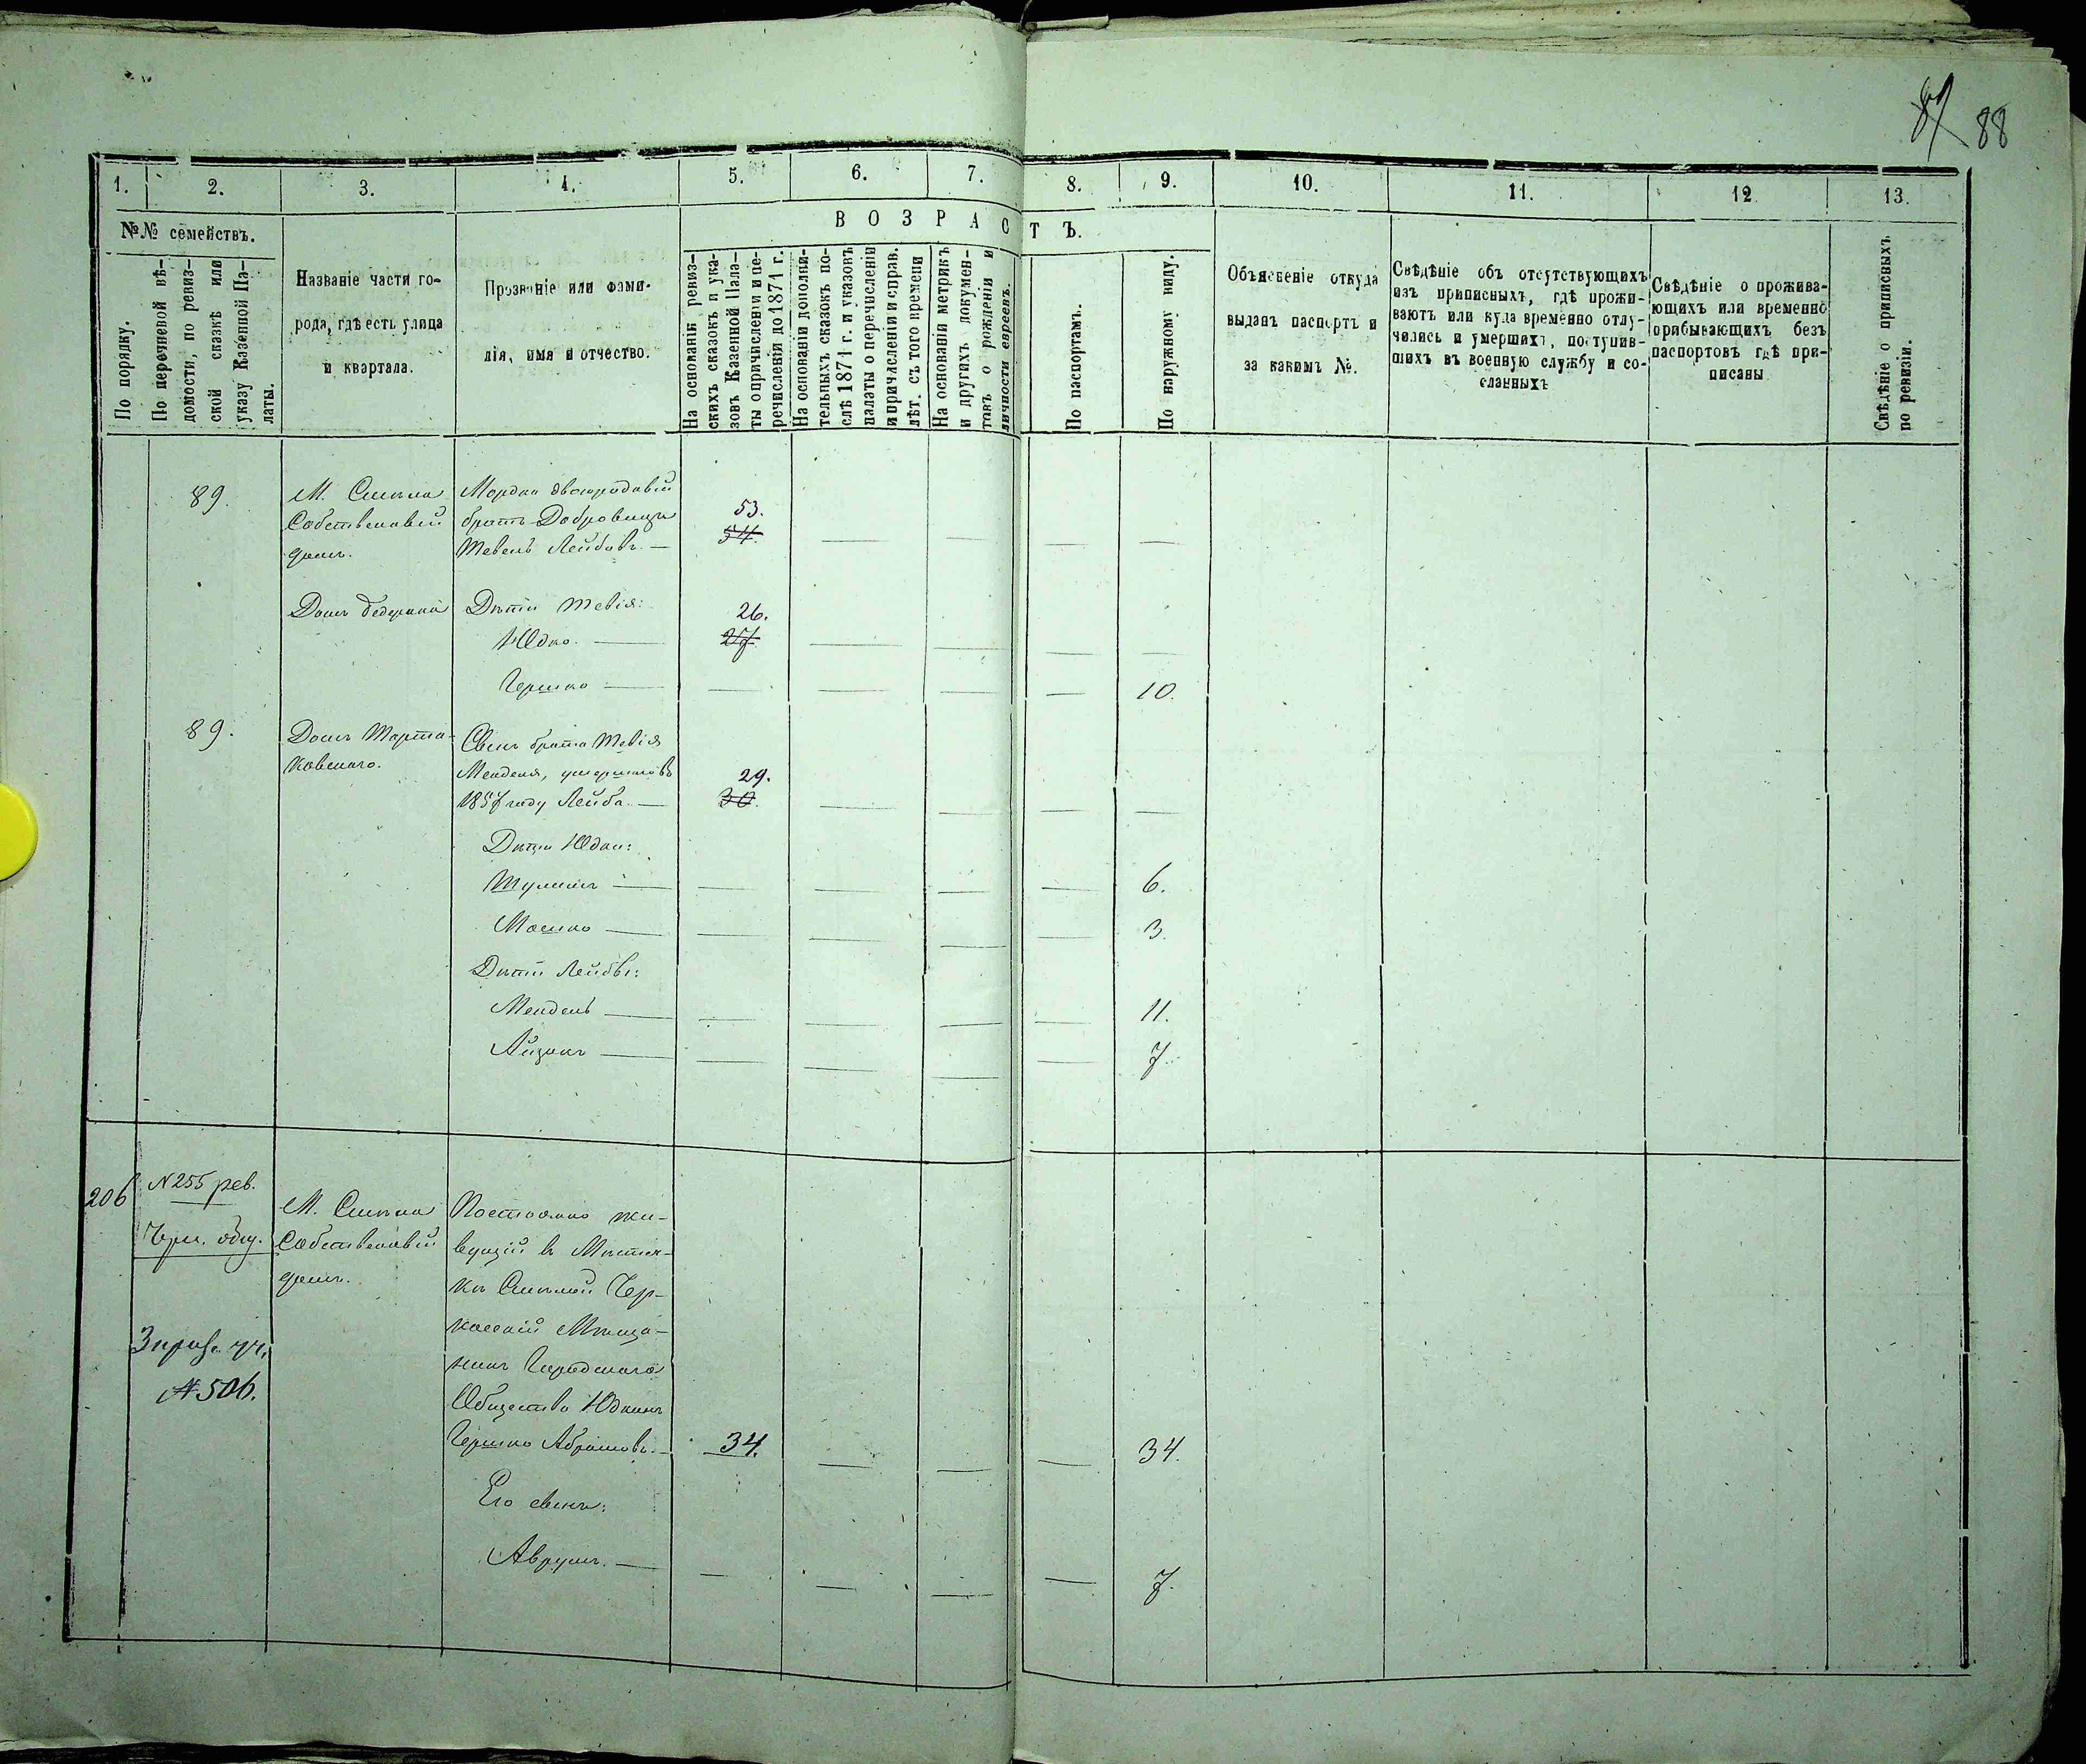 87 88
1. 2. 3. 4. 5. 6. 7. 8. 9. 10. 11. 12 13.
№№ семействъ.
По порядку.
По перечневой вѣ-
домости, по ревиз-
ской сказкѣ или
указу Казенной Па-
латы.
Названіе части го-
рода, гдѣ есть улица
и квартала.
Прозваніе или фами-
лія, имя и отчество.
ВОЗРАСТЪ.
На основаніи ревиз-
скихъ сказокъ и ука-
зовъ Казенной Пала-
ты о причисленіи и пе-
речисленіи до 1871 г.
На основаніи дополни-
тельныхъ сказокъ по-
слѣ 1871 г. и указовъ
палаты о перечисленіи
и причисленіи и справ.
лѣт. съ того времени
На основаніи метрикъ
и другихъ докумен-
товъ о рожденіи и
личности евреевъ.
По паспортамъ.
По наружному виду.
Объясненіе откуда
выданъ паспортъ и
за какимъ №.
Свѣдѣніе объ отсутствующихъ
изъ приписныхъ, гдѣ прожи-
ваютъ или куда временно отлу-
чились и умершихъ, поступив-
шихъ въ военную службу и со-
сланныхъ
Свѣдѣніе о прожива-
ющихъ или временно
прибывающихъ безъ
паспортовъ гдѣ при-
писаны
Свѣдѣніе о приписныхъ
по ревизіи.
89. М. Смѣла Мордка двоюродный
Собственный братъ Добровицкъ 53.
домъ. Тевель Лейбовъ. — 54.
Домъ Дѣти Тевія: 26.
Юдко. — 27
Гершко — 10.
89. Домъ Марта- Сынъ брата Тевія
ковскаго. Менделя, умершаго въ 29.
1857 году Лейба. — 30.
Дѣти Юдки:
Шулимъ — 6.
Мошко — 3.
Дѣти Лейбы:
Мендель — 11.
Айзикъ — 7.
206 N 255 рев.
М. Смѣла Постоянно жи-
Чер. общ. Собственный вущій въ Мѣстеч-
домъ. кѣ Смѣлой Чер-
3 призв. уч. касскій Мѣща-
нинъ Городскаго
№ 506. Общества Юдкинъ
Гершко Абрамовъ. — 34. 34.
Его сынъ:
Аврумъ. — 7.